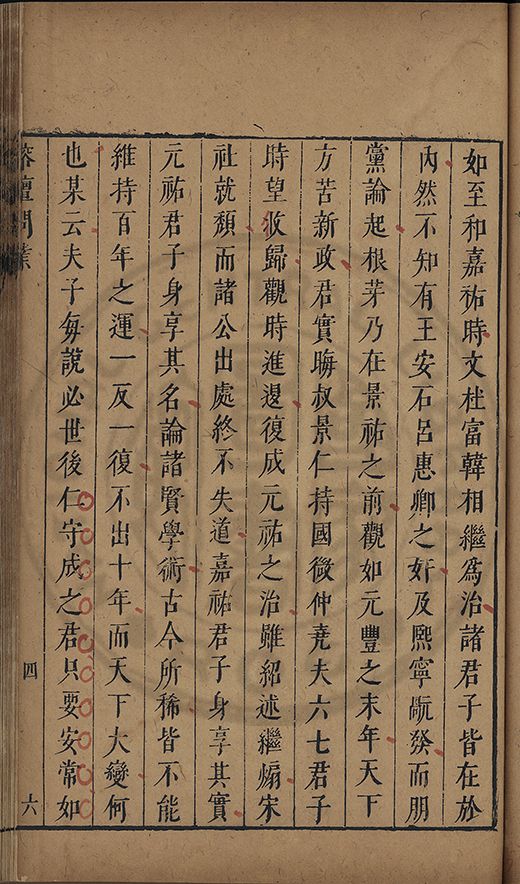 如至和嘉祐時文杜富韓相繼為治諸君子皆在於
內然不知有王安石呂惠卿之奸及熙寧瓬發而朋
黨論起根芽乃在景祐之前觀如元豐之末年天下
方苦新政君實晦叔景仁持國微仲堯夫六七君子
時望攸歸觀時進退復成元祐之治雖紹述繼煽宋
社就頹而諸公出處終不失道嘉祐君子身享其實
元祐君子身享其名論諸賢學術古今所稀皆不能
維持百年之運一反一復不出十年而天下大變何
也某云夫子每說必世後仁守成之君只要安常如
榕壇問業
四
六